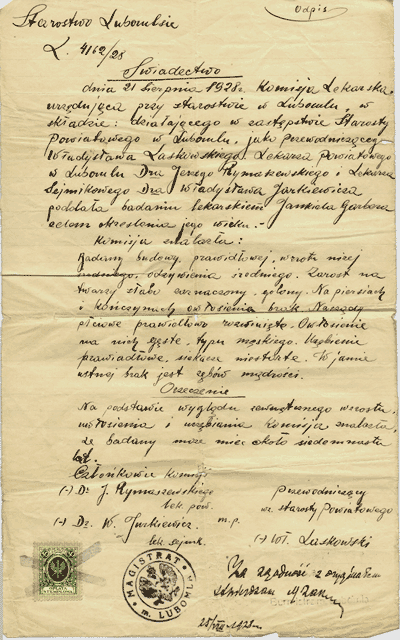 Odpis
Starostwo Lubomlskie
L. 4162/28
Świadectwo
dnia 21 sierpnia 1928 r. Komisja Lekarska,
urzędująca przy starostwie w Lubomlu, w
składzie: działającego w zastępstwie Starosty
Powiatowego w Lubomlu, jako przewodniczący
Władysława Laskowskiego, Lekarza Powiatowego
w Lubomlu Dra Jerzego Rymaszewskiego i Lekarza
Sejmikowego Dra Władysława Jurkiewicza
poddała badaniu lekarskiemu Jankiela Garbera
celem określenia jego wieku.-
Komisja znalazła:
Badany budowy prawidłowej, wzrostu niżej
średniego, odżywienia średniego. Zarost na
twarzy słabo zaznaczony, golony. Na piersiach
i kończynach owłosienia brak. Narządy
płciowe prawidłowo rozwinięte. Owłosienie
na nich gęste, typu męskiego. Uzębienie
prawidłowe, siekacze niestarte. W jamie
ustnej brak jest zębów mądrości.
Orzeczenie
Na podstawie wyglądu zewnętrznego wzrostu,
owłosienia i uzębienia Komisja znalazła,
że badany może mieć około siedemnastu
lat.
Członkowie Komisji
(-) Dr J. Rymaszewski
lek. pow.
(-) Dr. W. Jurkiewicz
lek. sejmik.
m.p.
Przewodniczący
wz. starosty Powiatowego
(-) Wł. Laskowski
Za zgodność z oryginałem
stwierdzam
MAGISTRAT
m. LUBOML
25/VIII 1928 r.